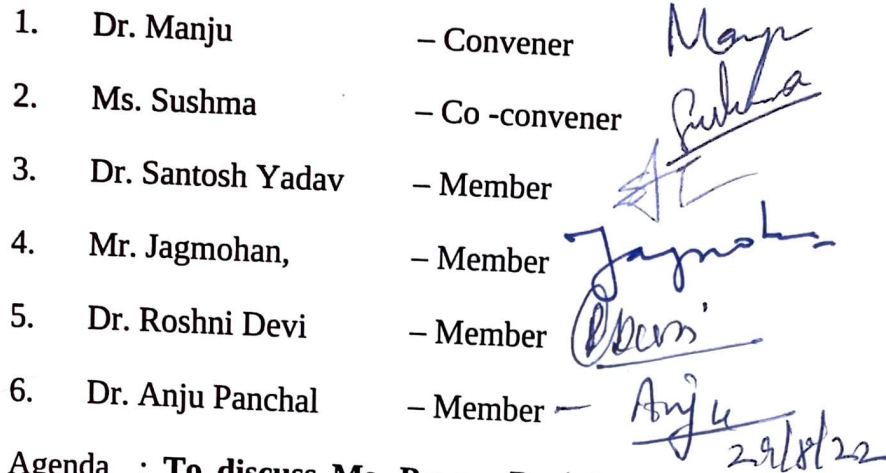 1. Dr. Manju – Convener Manju
2. Ms. Sushma – Co -convener Sushma
3. Dr. Santosh Yadav – Member
4. Mr. Jagmohan, – Member Jagmohan
5. Dr. Roshni Devi – Member RDevi
6. Dr. Anju Panchal – Member – Anju
29/8/22
Agenda : To discuss Ms.